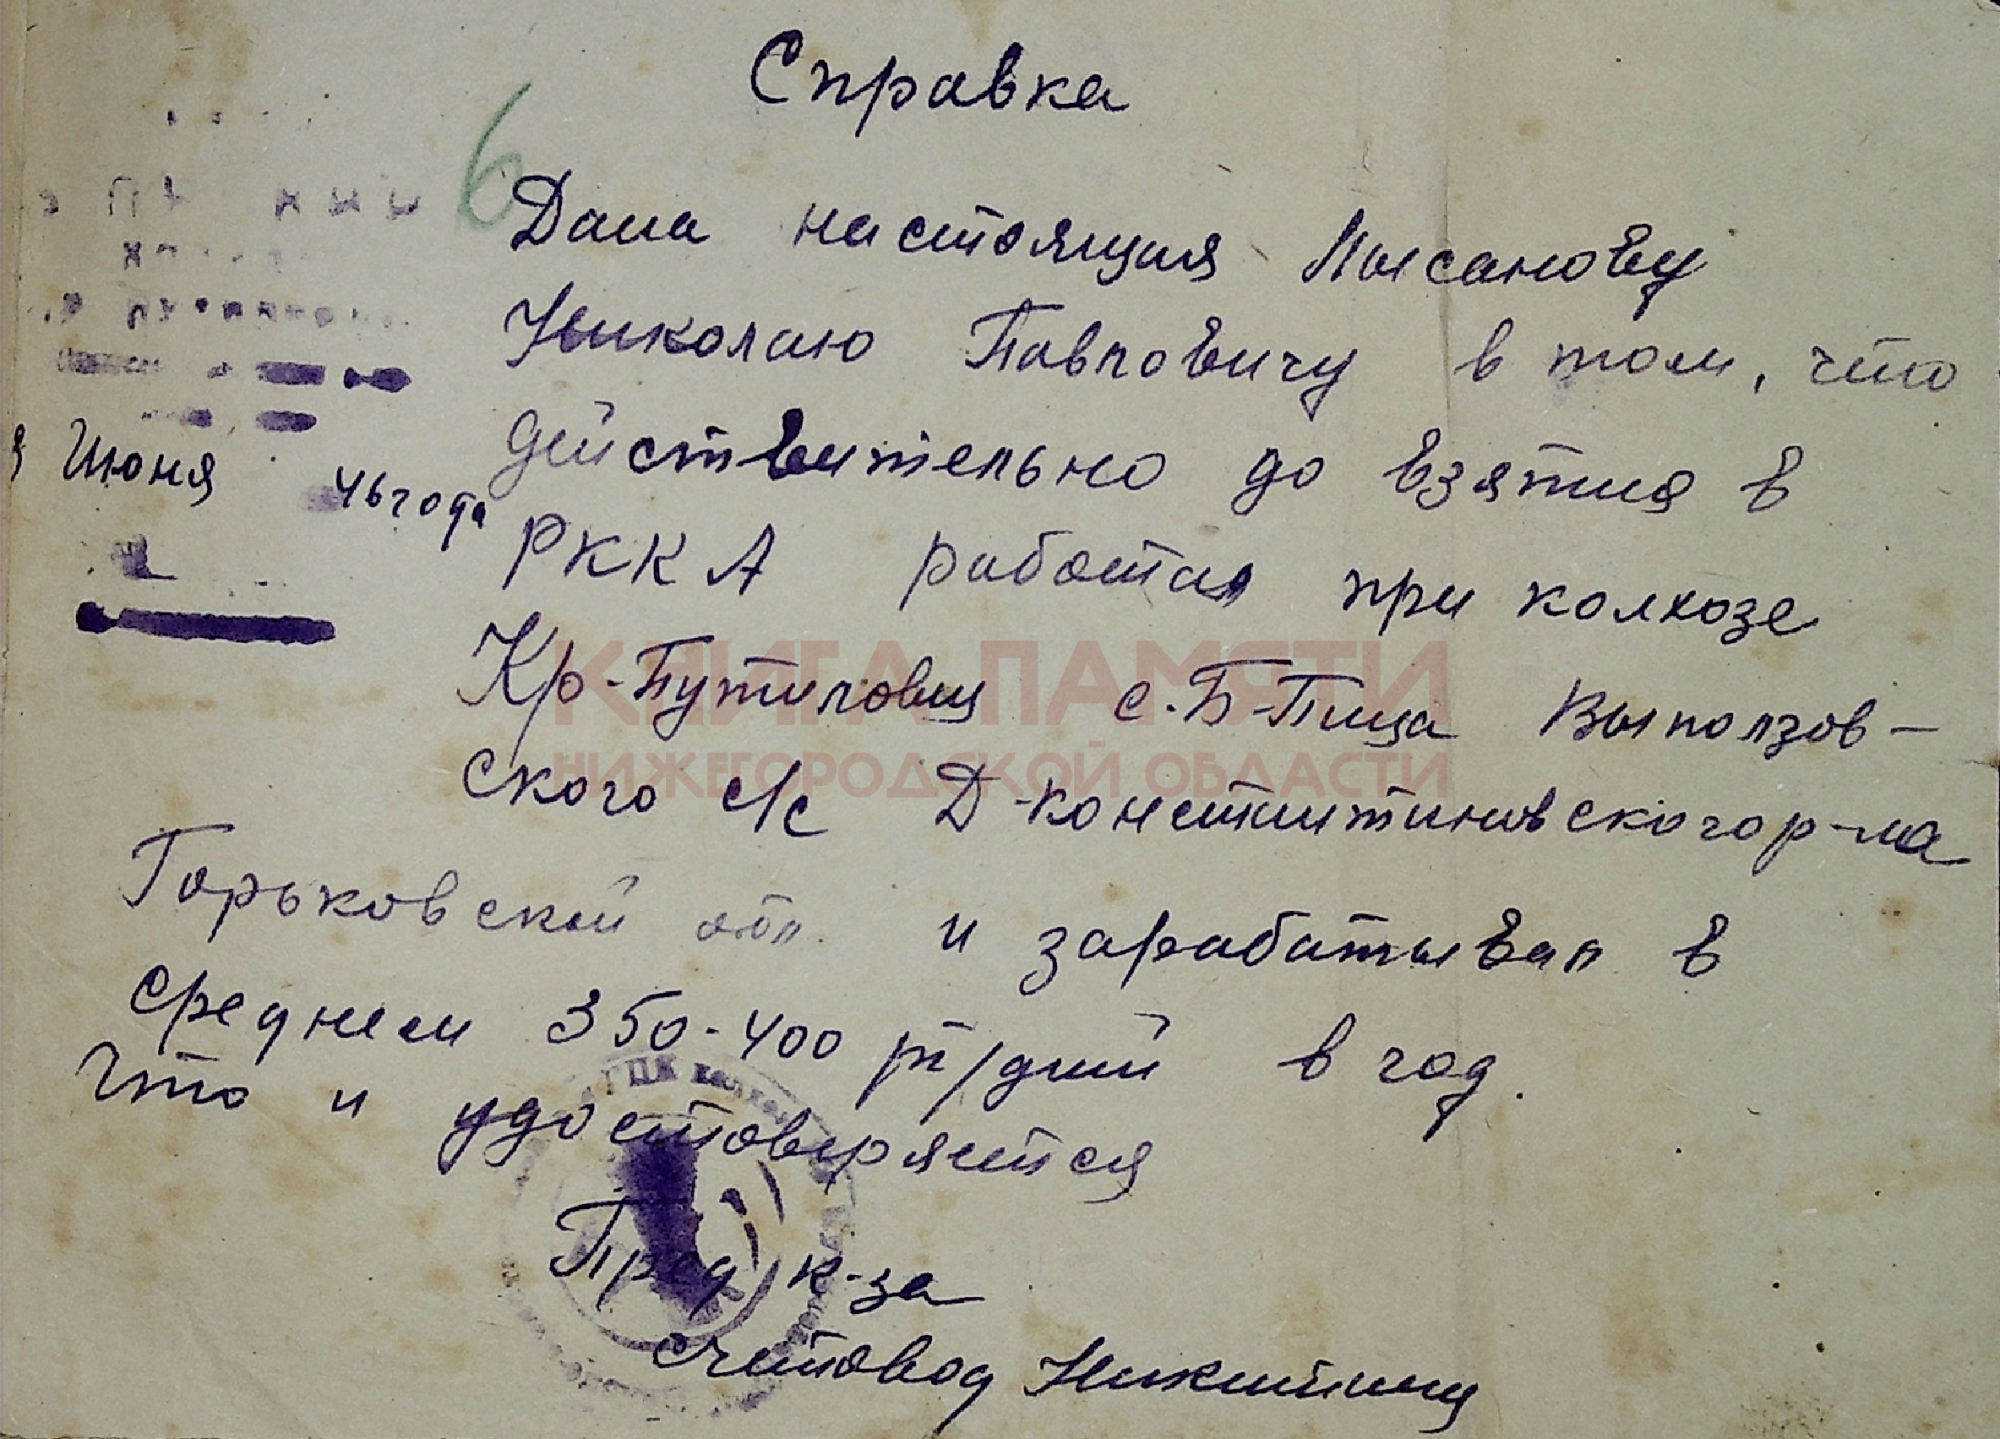 Справка
6
Дана настоящая Лысанову
Николаю Павловичу в том, что
действительно до взятия в
Июня 46 года
РККА работал при колхозе
Кр-Путиловец с.Б-Пица Выползов-
ского с/с Д-Константиновского р-на
Горьковской обл. и зарабатывал в
среднем 350-400 тр/дней в год.
Что и удостоверяется
Пред к-за
счетовод Никитина
КНИГА ПАМЯТИ
НИЖЕГОРОДСКОЙ ОБЛАСТИ